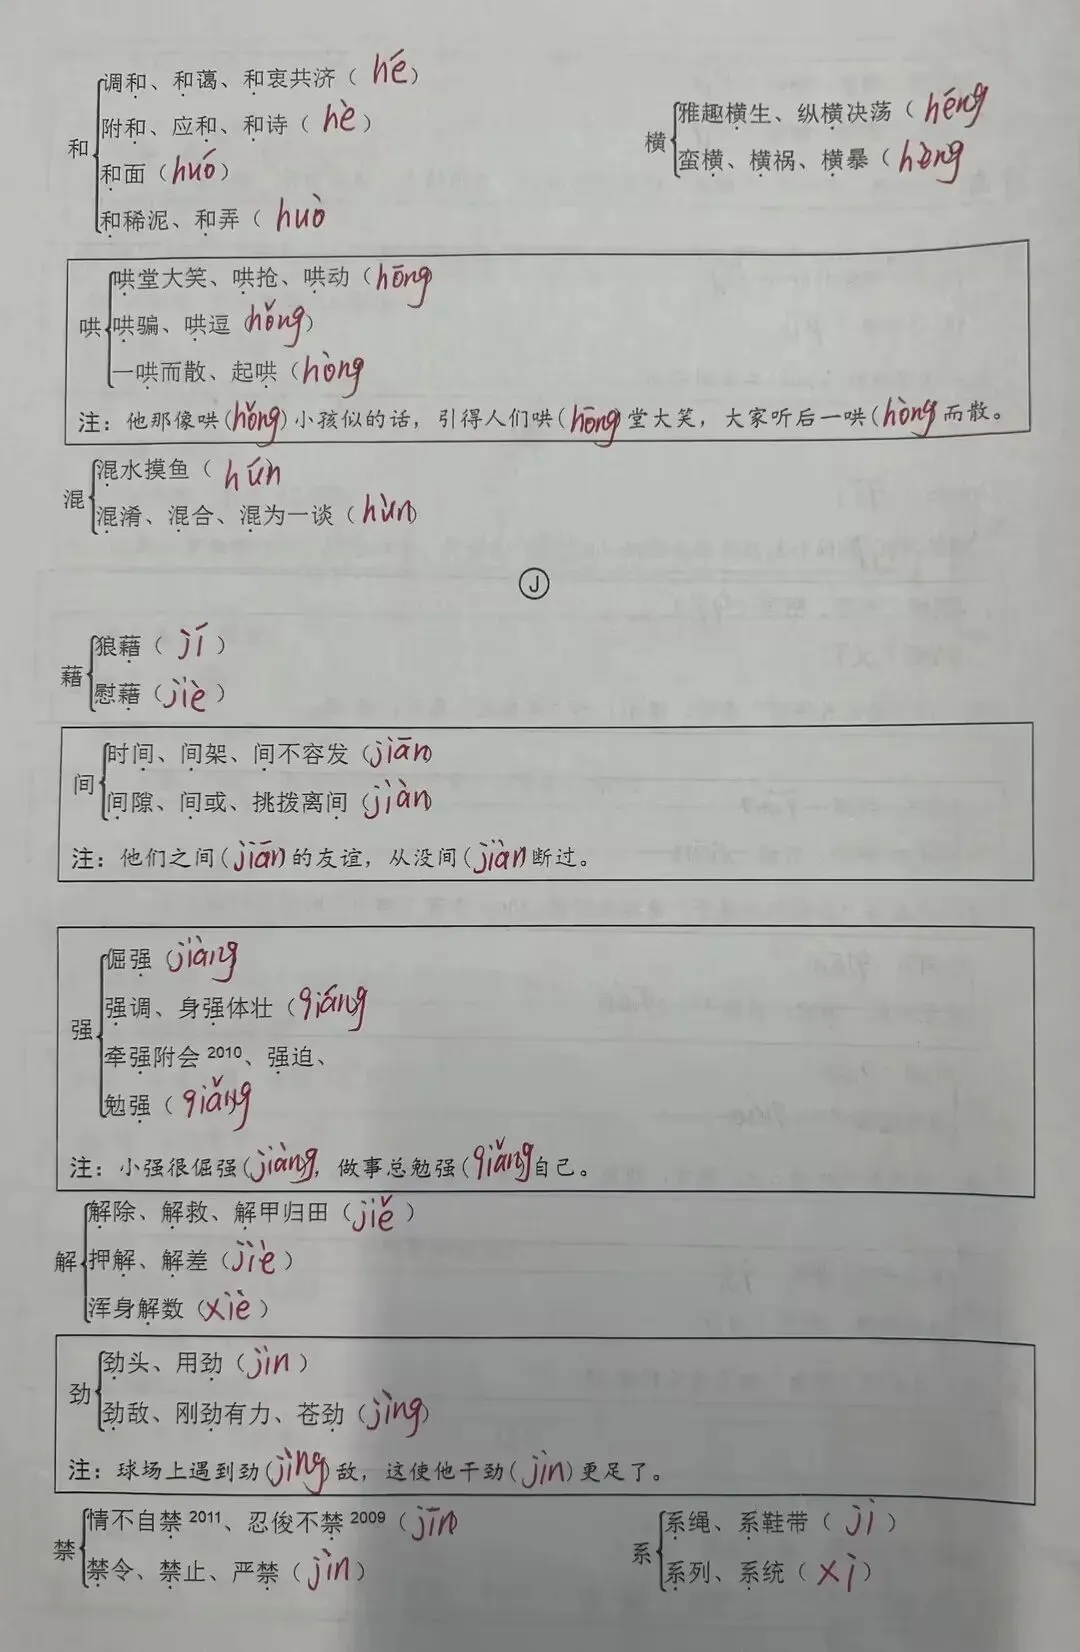 和
调和、和蔼、和衷共济（hé）
附和、应和、和诗（hè）
和面（huó）
和稀泥、和弄（huò
横
雅趣横生、纵横决荡（héng
蛮横、横祸、横暴（hèng
哄
哄堂大笑、哄抢、哄动（hōng
哄骗、哄逗（hǒng）
一哄而散、起哄（hòng
注：他那像哄(hǒng)小孩似的话，引得人们哄(hōng)堂大笑，大家听后一哄(hòng而散。
混
混水摸鱼（hún
混淆、混合、混为一谈（hùn）
J
藉
狼藉（jí）
慰藉（jiè）
间
时间、间架、间不容发（jiān）
间隙、间或、挑拨离间（jiàn）
注：他们之间(jiān)的友谊，从没间(jiàn)断过。
强
倔强（jiàng
强调、身强体壮（qiáng
牵强附会2010、强迫、
勉强（qiǎng
注：小强很倔强(jiàng)，做事总勉强(qiǎng)自己。
解
解除、解救、解甲归田（jiě）
押解、解差（jiè）
浑身解数（xiè）
劲
劲头、用劲（jìn）
劲敌、刚劲有力、苍劲（jìng）
注：球场上遇到劲(jìng)敌，这使他干劲(jìn)更足了。
禁
情不自禁2011、忍俊不禁2009（jīn）
禁令、禁止、严禁（jìn）
系
系绳、系鞋带（jì）
系列、系统（xì）